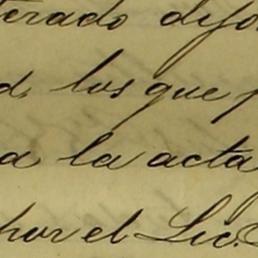 terado dijo
d, los que p
a la acta
por el Lic.